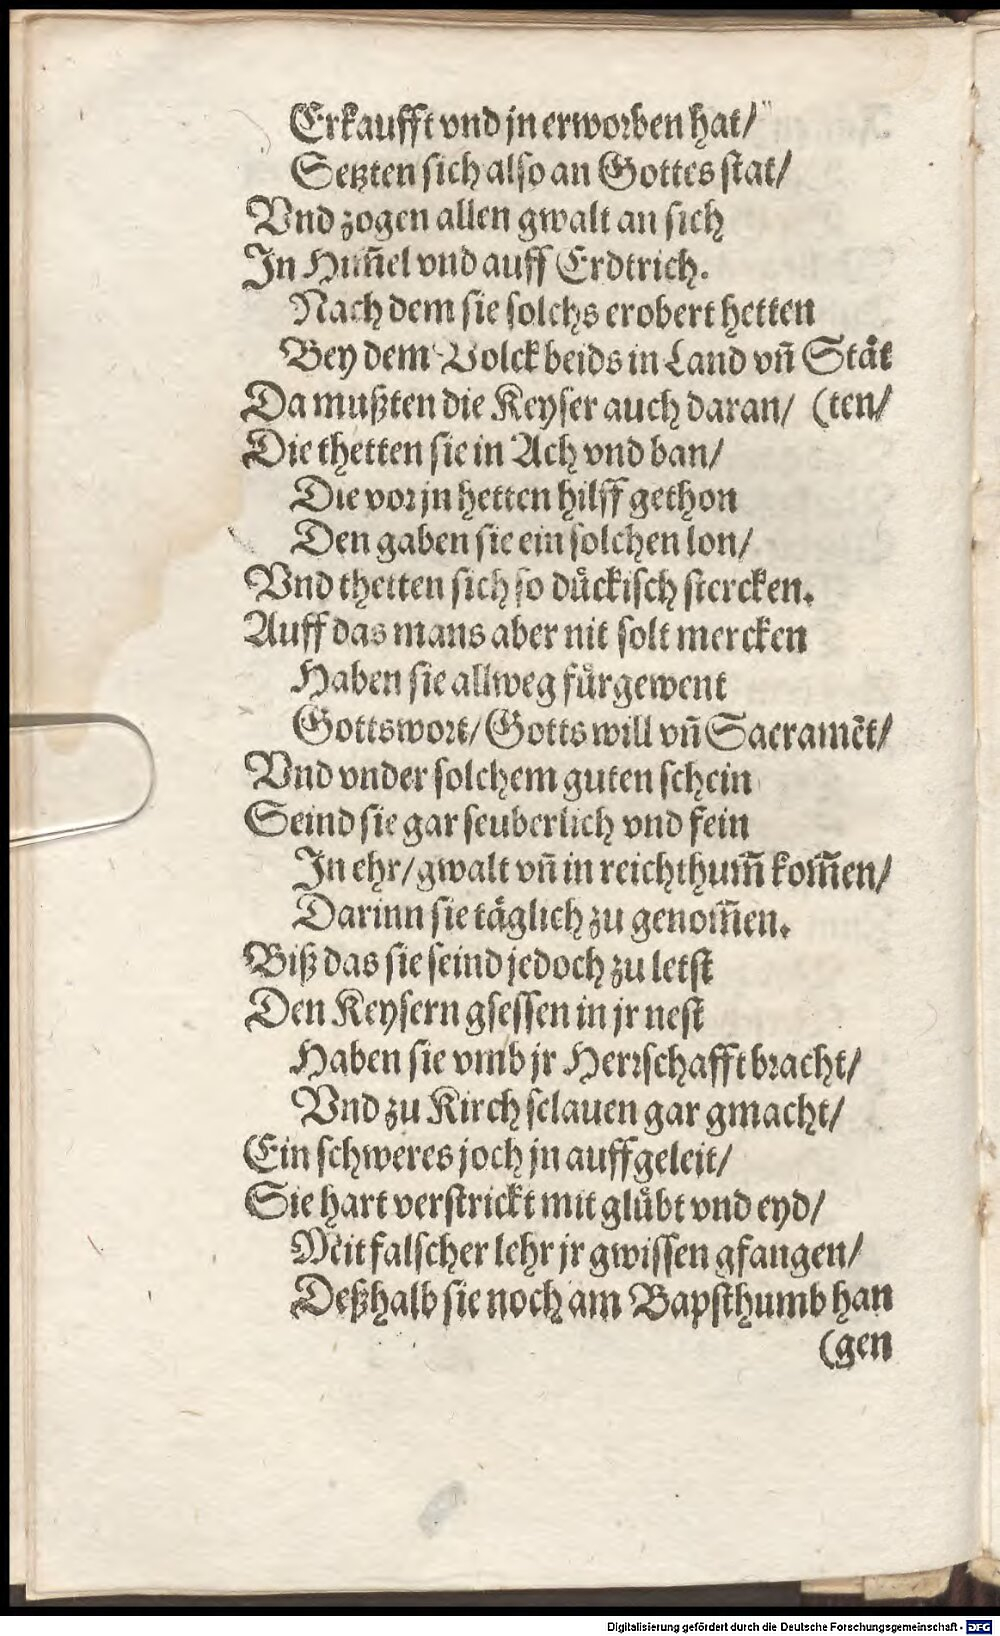 Erkaufft vnd jn erworben hat/
Setzten sich also an Gottes stat/
Vnd zogen allen gwalt an sich
In Him̃el vnd auff Erdtrich.
Nach dem sie solchs erobert hetten
Bey dem Volck beids in Land vñ Stät
Da mußten die Keyser auch daran/ (ten/
Die thetten sie in Ach vnd ban/
Die vor jn hetten hilff gethon
Den gaben sie ein solchen lon/
Vnd thetten sich so duͤckisch stercken.
Auff das mans aber nit solt mercken
Haben sie allweg fuͤrgewent
Gottswort/ Gotts will vñ Sacramẽt/
Vnd vnder solchem guten schein
Seind sie gar seuberlich vnd fein
In ehr/ gwalt vñ in reichthum̃ kom̃en/
Darinn sie täglich zu genom̃en.
Biß das sie seind jedoch zu letst
Den Keysern gsessen in jr nest
Haben sie vmb jr Herrschafft bracht/
Vnd zu Kirch sclauen gar gmacht/
Ein schweres joch jn auffgeleit/
Sie hart verstrickt mit gluͤbt vnd eyd/
Mit falscher lehr jr gwissen gfangen/
Deßhalb sie noch am Bapsthumb han
(gen
Digitalisierung gefördert durch die Deutsche Forschungsgemeinschaft - DFG